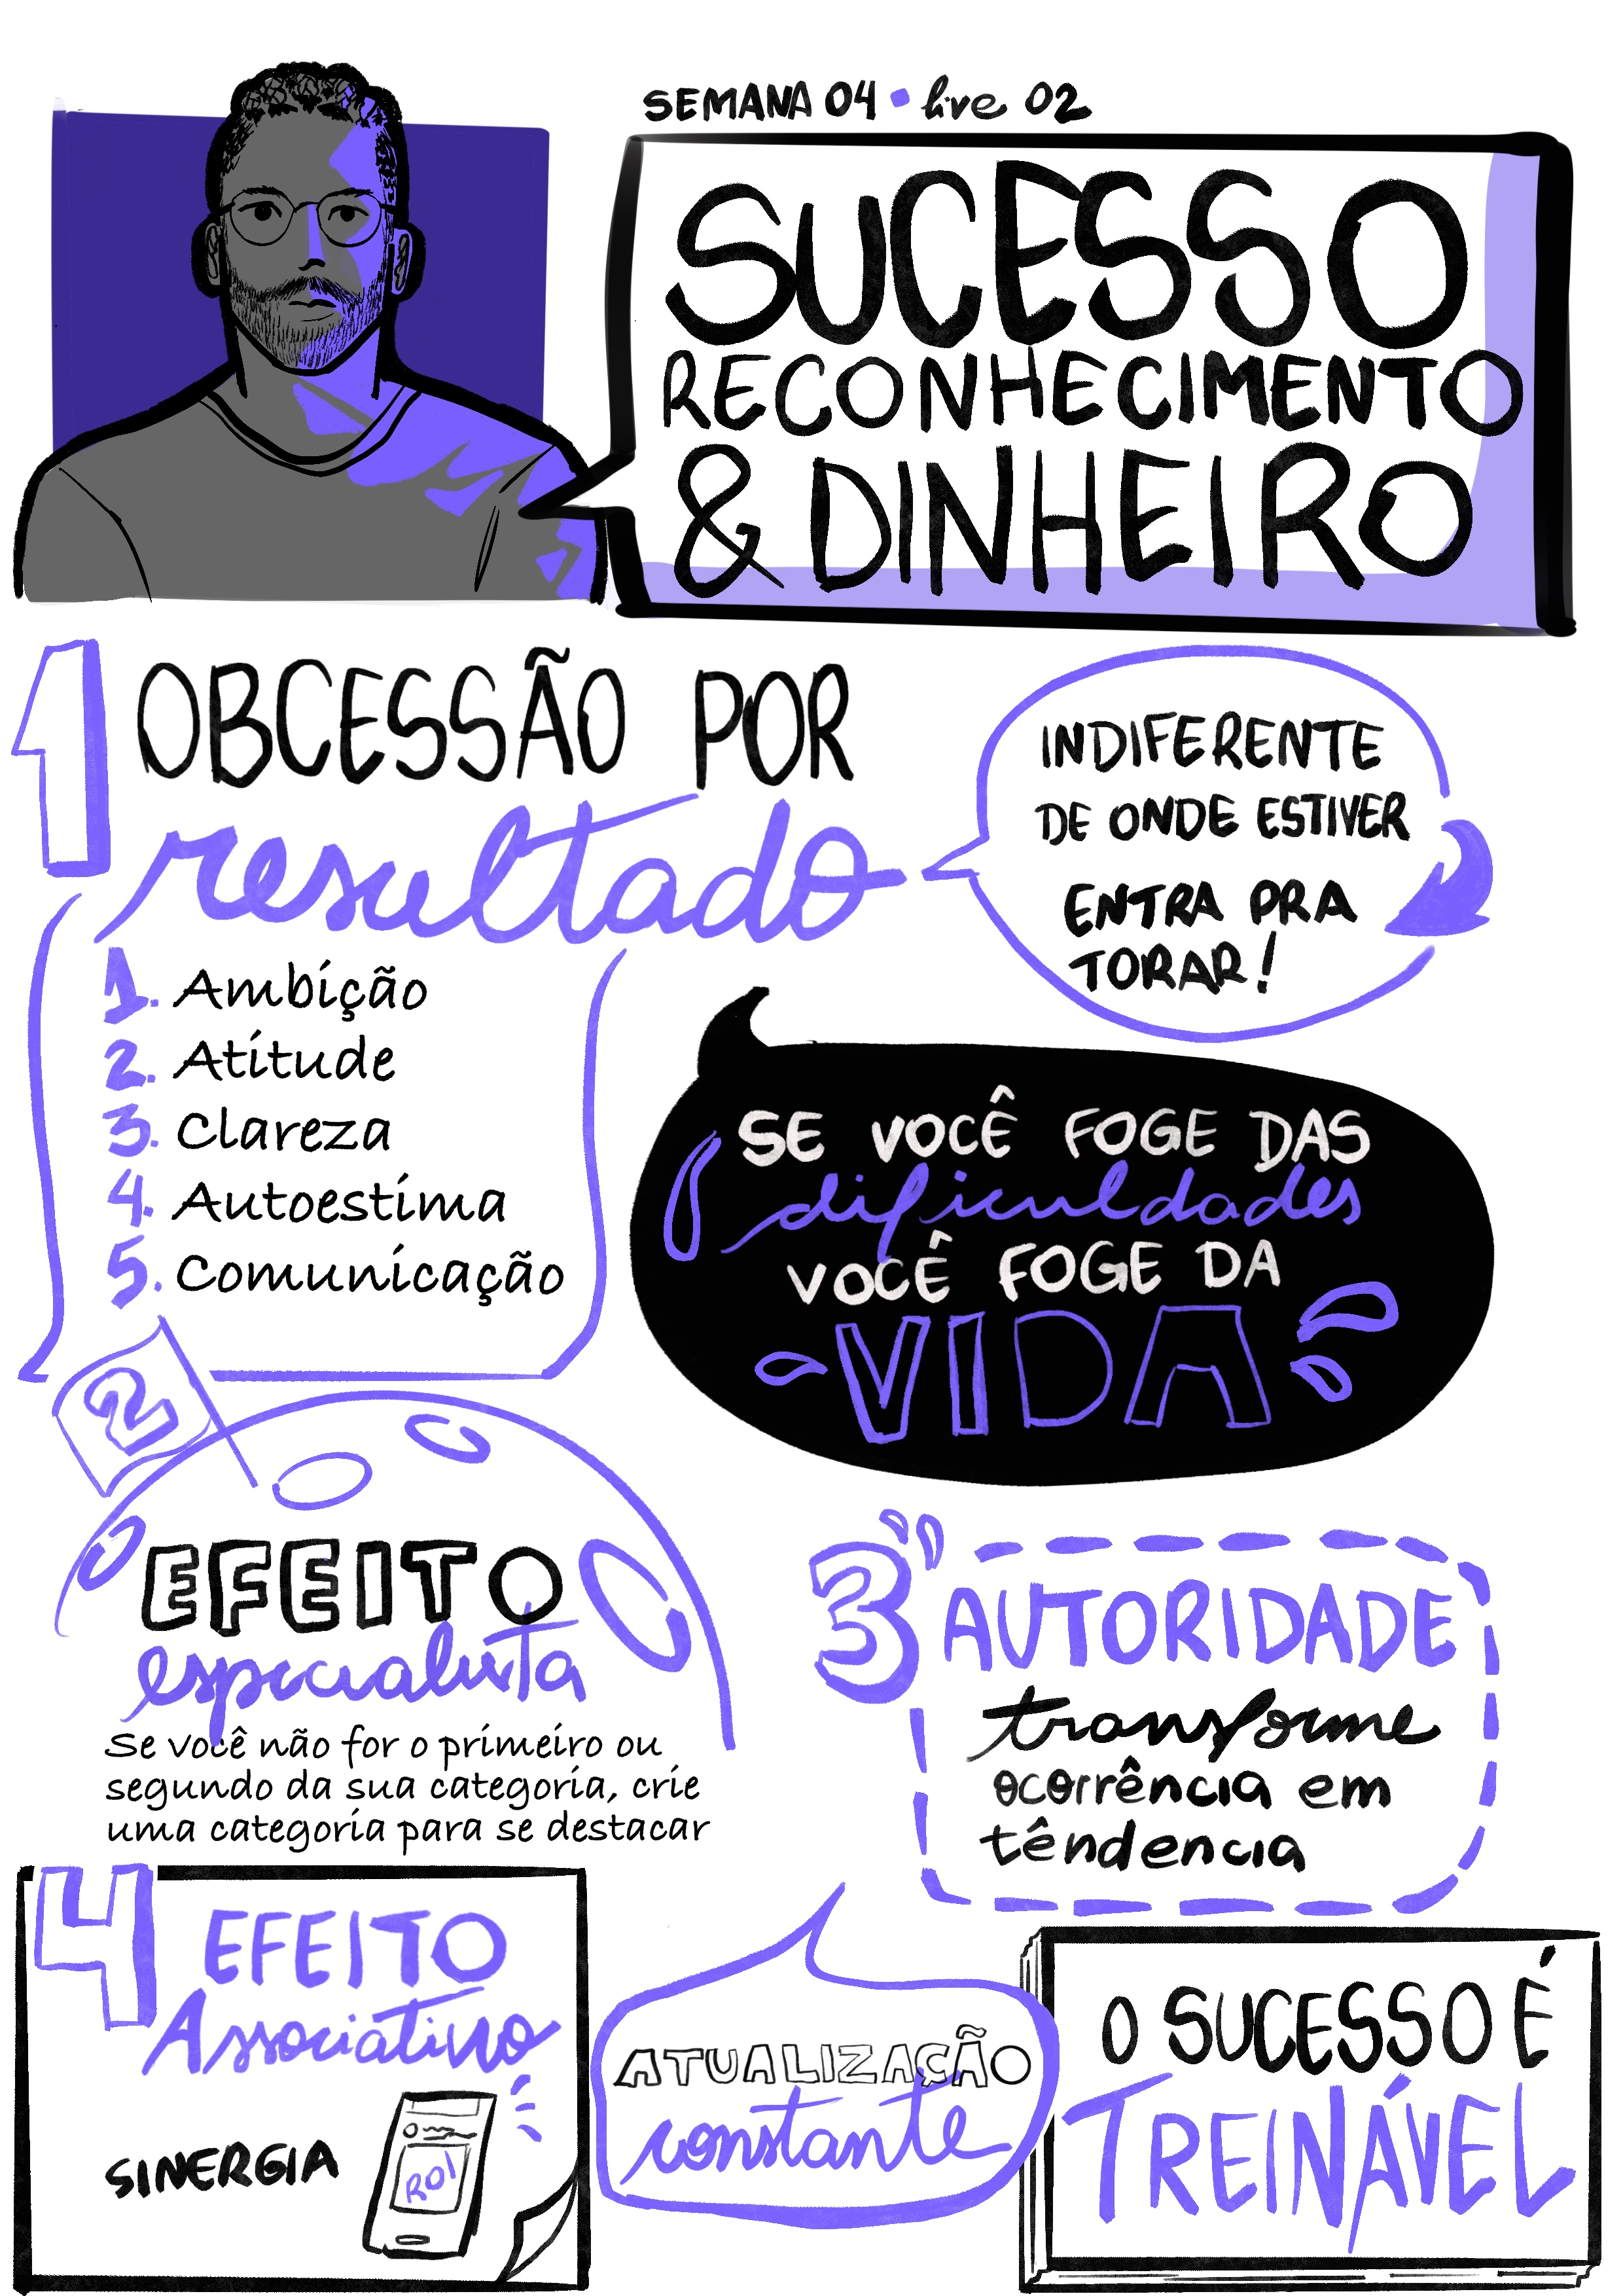 SEMANA 04 • live 02
SUCESSO
RECONHECIMENTO
& DINHEIRO
1 OBCESSÃO POR
resultado
INDIFERENTE
DE ONDE ESTIVER
ENTRA PRA
TORAR!
1. Ambição
2. Atitude
3. Clareza
4. Autoestima
5. Comunicação
SE VOCÊ FOGE DAS
dificuldades
VOCÊ FOGE DA
VIDA
2
EFEITO
especialista
Se você não for o primeiro ou
segundo da sua categoria, crie
uma categoria para se destacar
3 AUTORIDADE
transforme
ocorrência em
têndencia
4 EFEITO
Associativo
SINERGIA
ROI
ATUALIZAÇÃO
constante
O SUCESSO É
TREINÁVEL